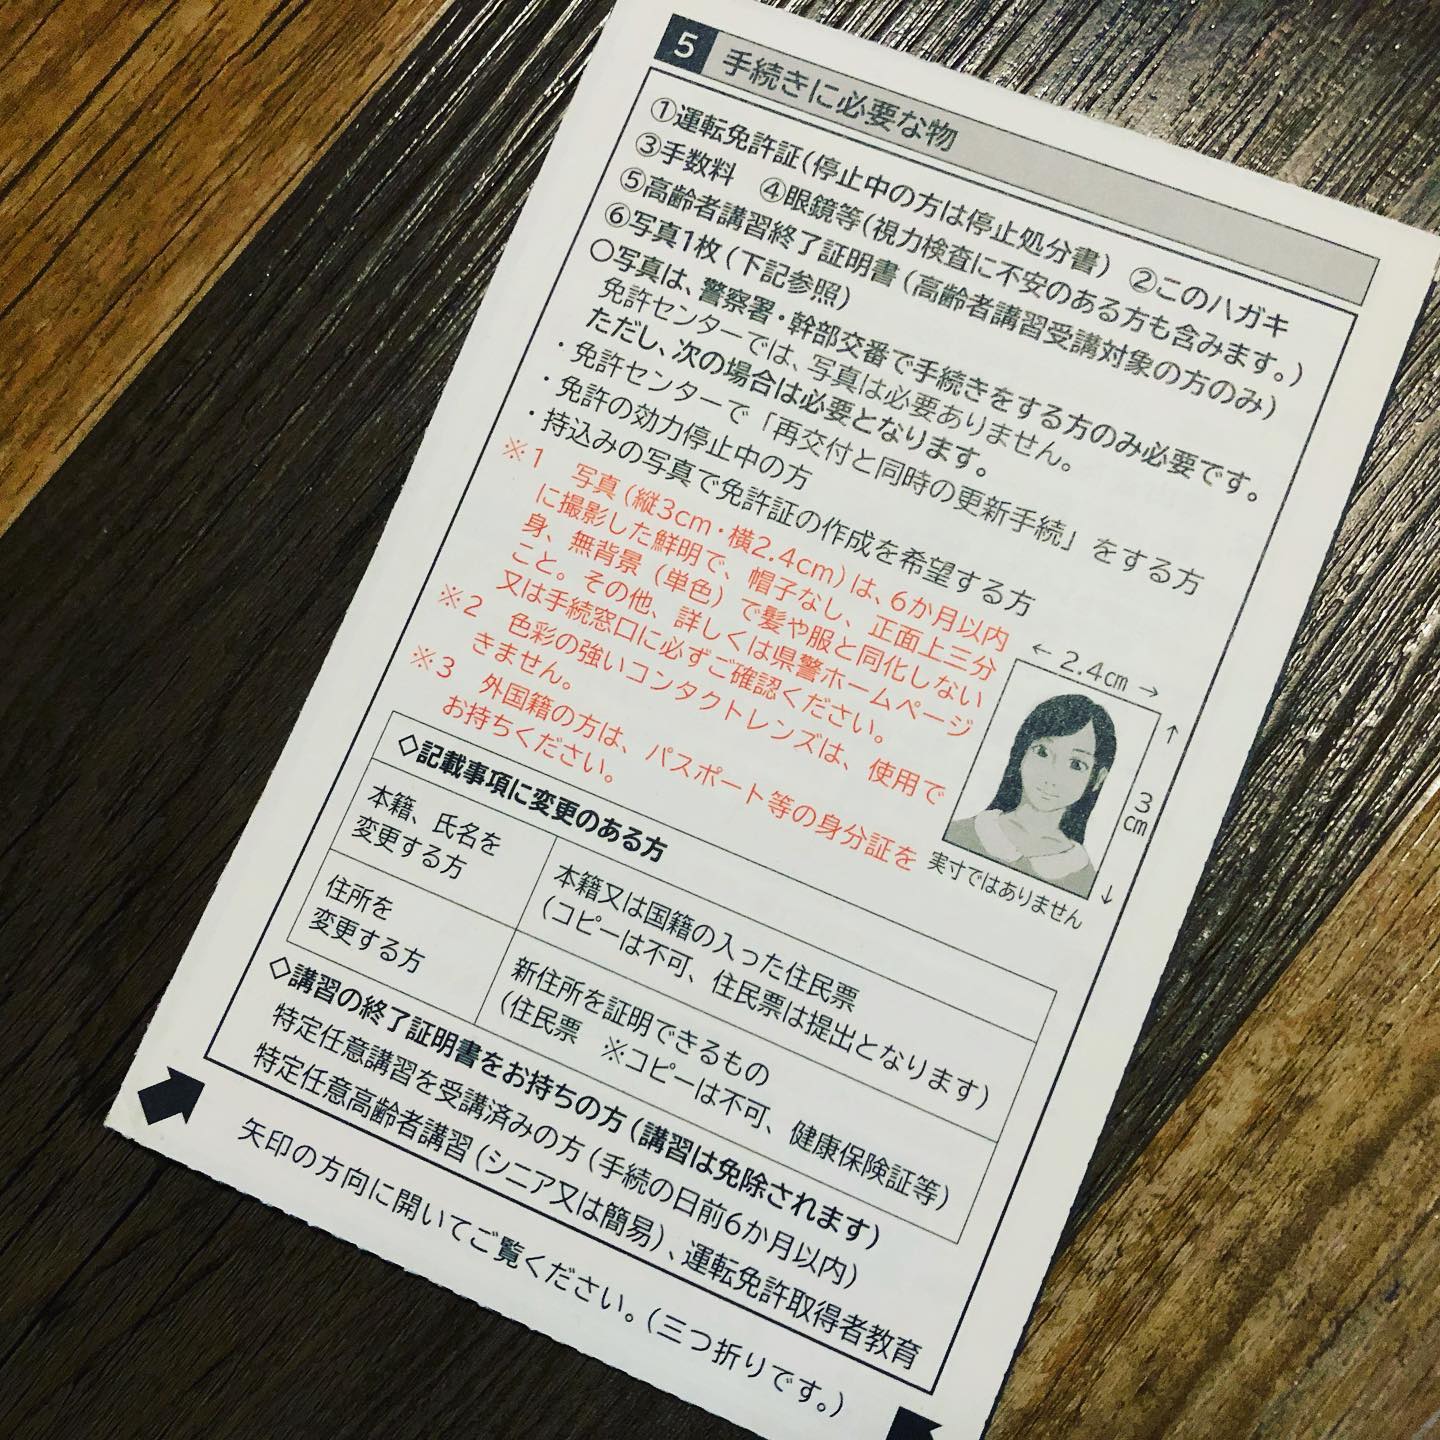 5 手続きに必要な物
①運転免許証(停止中の方は停止処分書) ②このハガキ
③手数料 ④眼鏡等(視力検査に不安のある方も含みます。)
⑤高齢者講習終了証明書(高齢者講習受講対象の方のみ)
⑥写真1枚(下記参照)
○写真は、警察署・幹部交番で手続きをする方のみ必要です。
免許センターでは、写真は必要ありません。
ただし、次の場合は必要となります。
・免許センターで「再交付と同時の更新手続」をする方
・免許の効力停止中の方
・持込みの写真で免許証の作成を希望する方
※1 写真(縦3cm・横2.4cm)は、6か月以内
に撮影した鮮明で、帽子なし、正面上三分
身、無背景(単色)で髪や服と同化しない
こと。その他、詳しくは県警ホームページ
又は手続窓口に必ずご確認ください。
※2 色彩の強いコンタクトレンズは、使用で
きません。
※3 外国籍の方は、パスポート等の身分証を
お持ちください。
← 2.4cm →
↑
3
cm
↓
実寸ではありません
◇記載事項に変更のある方
本籍、氏名を
変更する方
本籍又は国籍の入った住民票
(コピーは不可、住民票は提出となります)
住所を
変更する方
新住所を証明できるもの
(住民票 ※コピーは不可、健康保険証等)
◇講習の終了証明書をお持ちの方(講習は免除されます)
特定任意講習を受講済みの方(手続の日前6か月以内)
特定任意高齢者講習(シニア又は簡易)、運転免許取得者教育
矢印の方向に開いてご覧ください。(三つ折りです。)